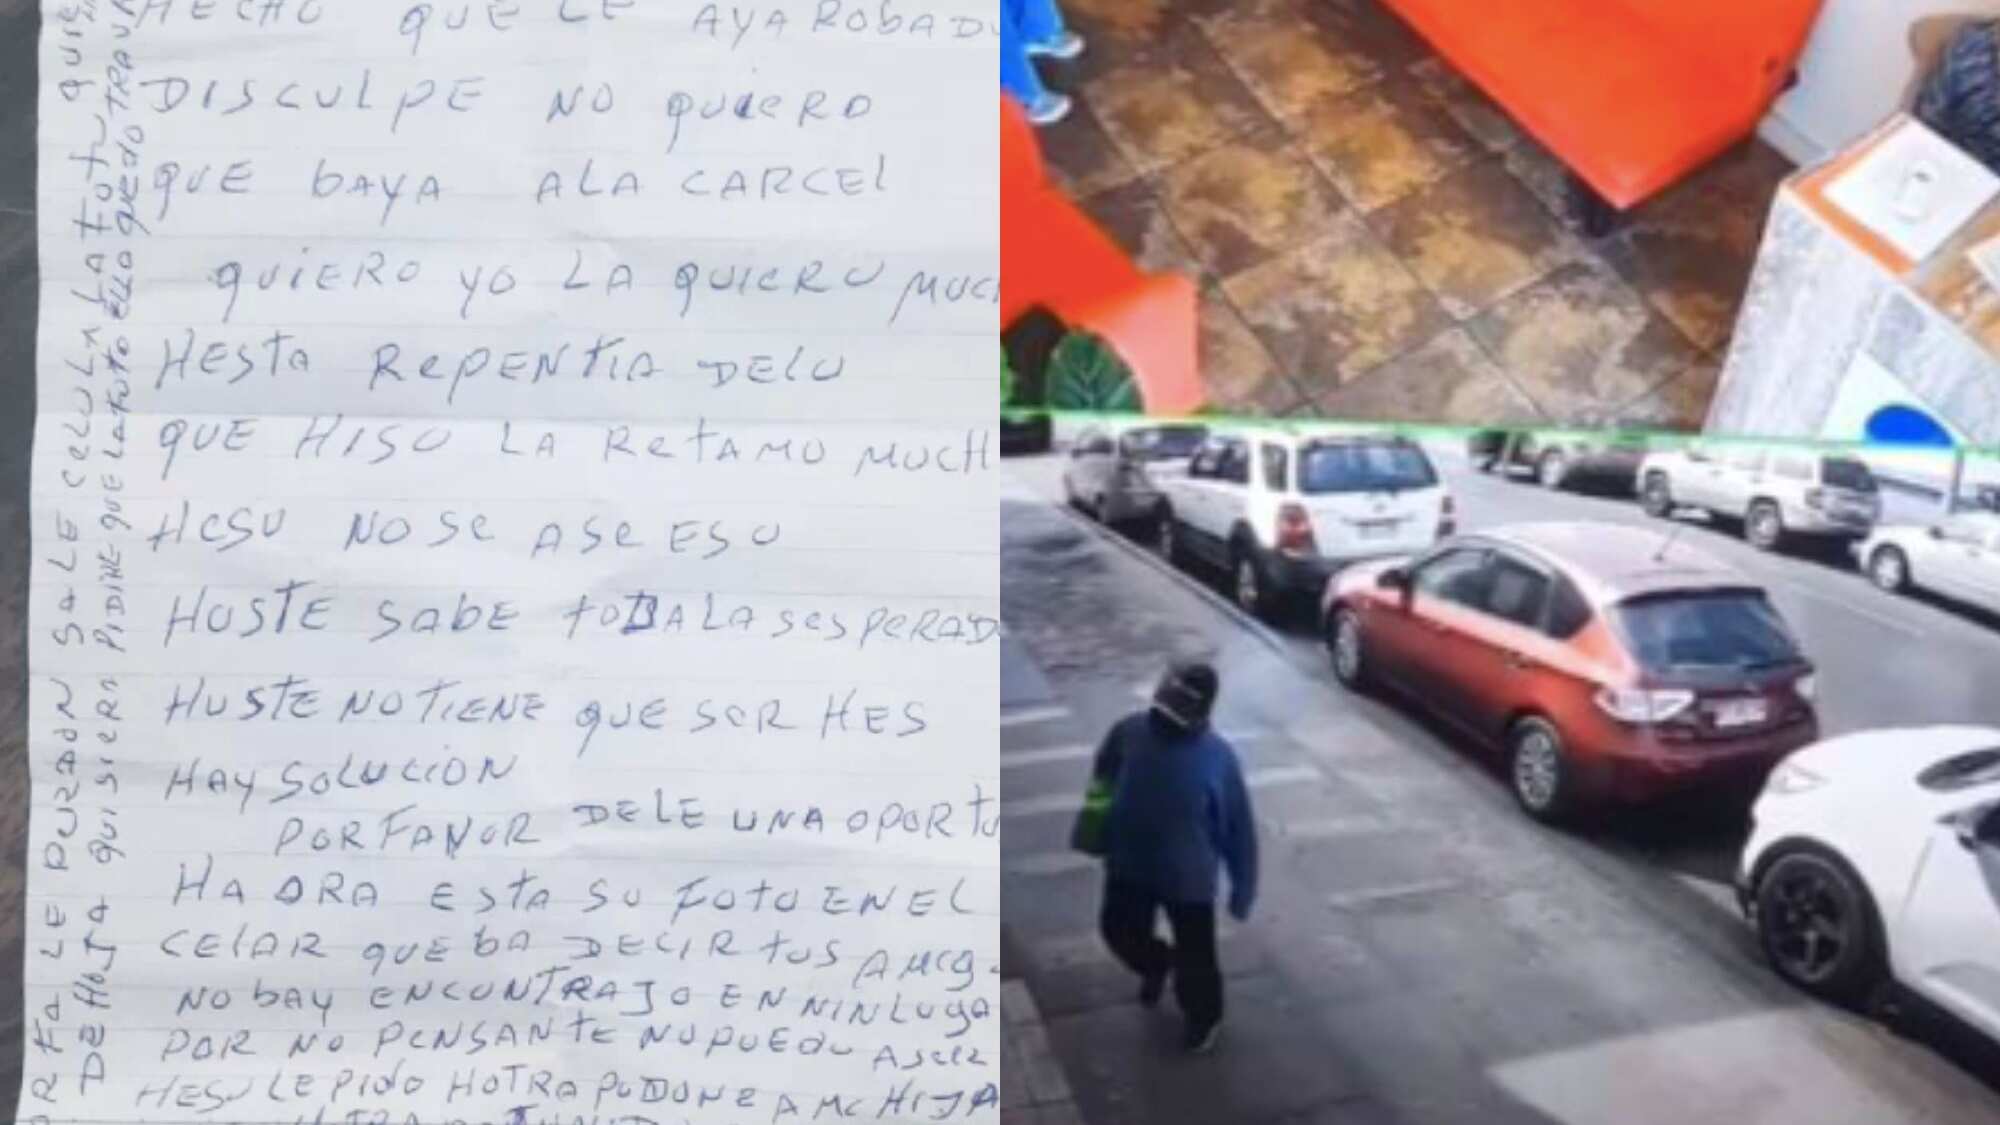 HECHO QUE LE AYA ROBADO
DISCULPE NO QUIERO
QUE BAYA ALA CARCEL
QUIERO YO LA QUIERO MUCH
HESTA REPENTIA DELO
QUE HISO LA RETAMO MUCH
HESO NO SE ASE ESO
HUSTE SABE TODA LA SESPERAD
HUSTE NO TIENE QUE SER HES
HAY SOLUCION
POR FAVOR DELE UNA OPORTU
HAORA ESTA SU FOTO EN EL
CELAR QUE BA DECIR TUS AMIG
NO BAY ENCONTRAJO EN NINLUGA
POR NO PENSANTE NO PUEDO ASER
HESO LE PIDO HOTRA PODONE A MC HIJA
OR FA LE PURADON SALE CELULA LA FOTU QUIE
DE HOJA QUISIERA PIDIHE QUE LA FOTO ELLA QUEDO TRAU